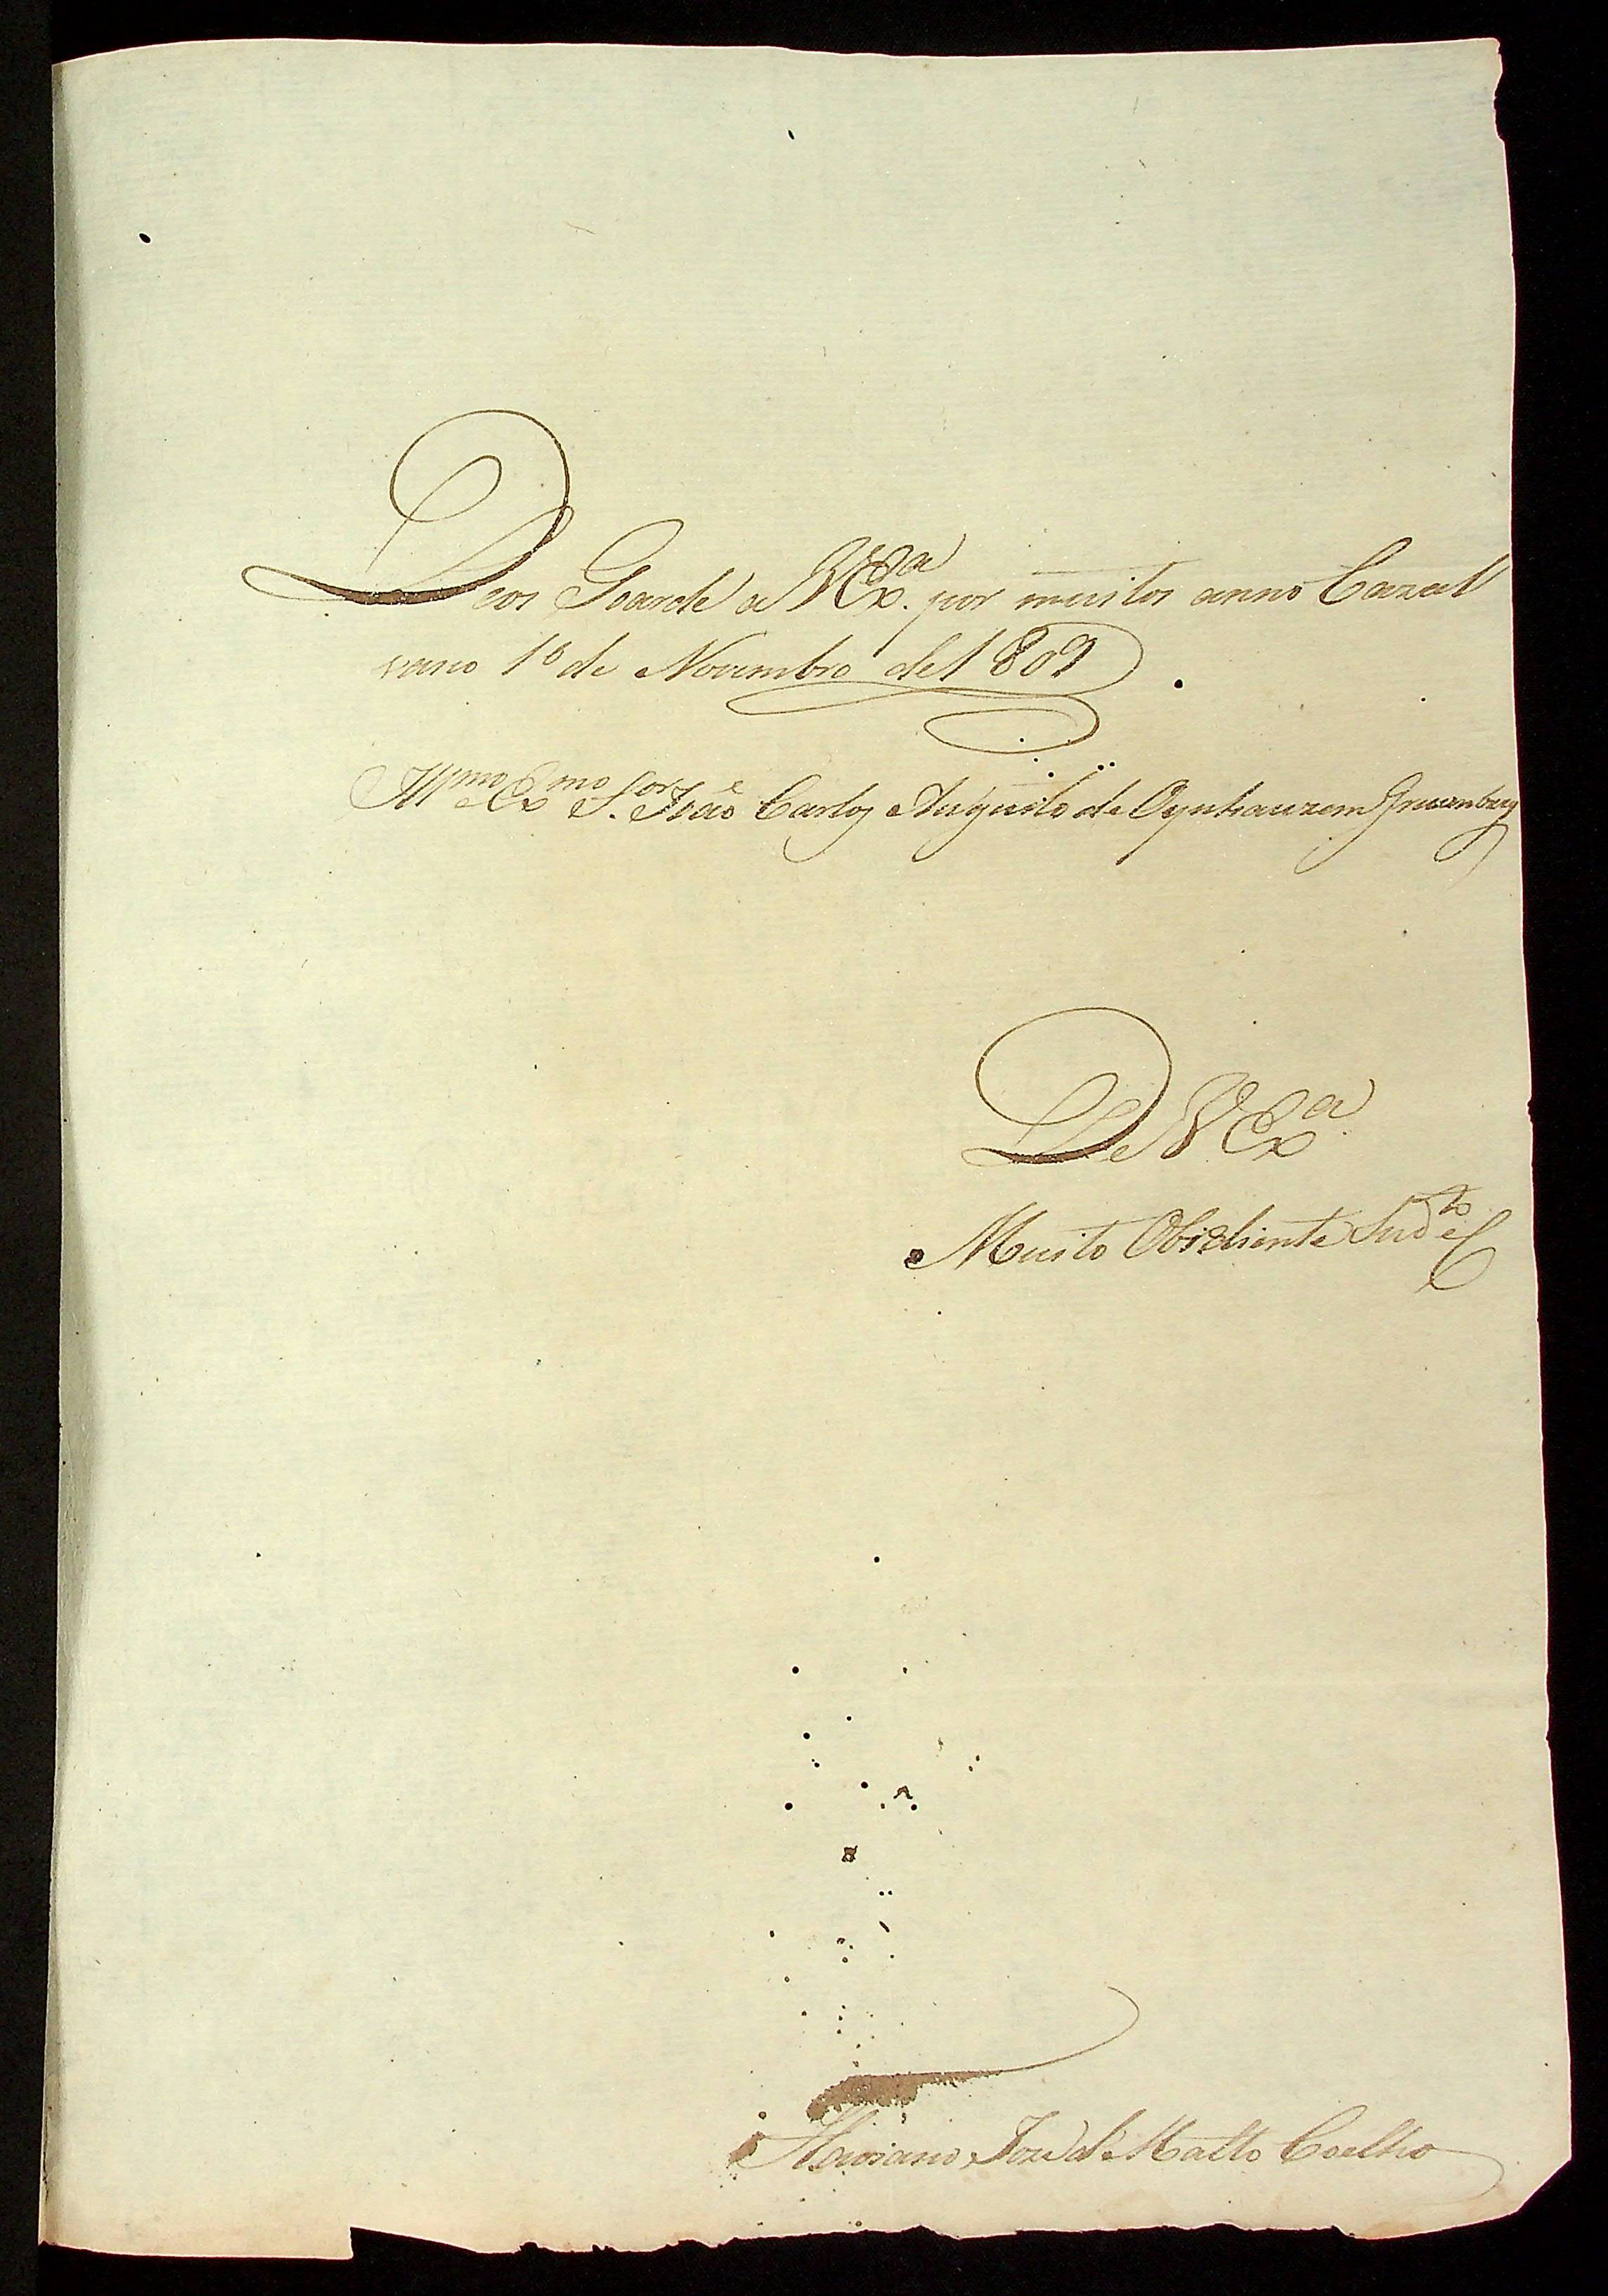 Deos Goarde a V Ex.ª por muitos anno Cazal
vasco 1º de Novembro de 1809
Illmo Exmo S.or João Carlos Augusto de Oynhauzem
De V Ex.ª
Muito Obidiente Sudto
Mariano Joze de Matto Coelho